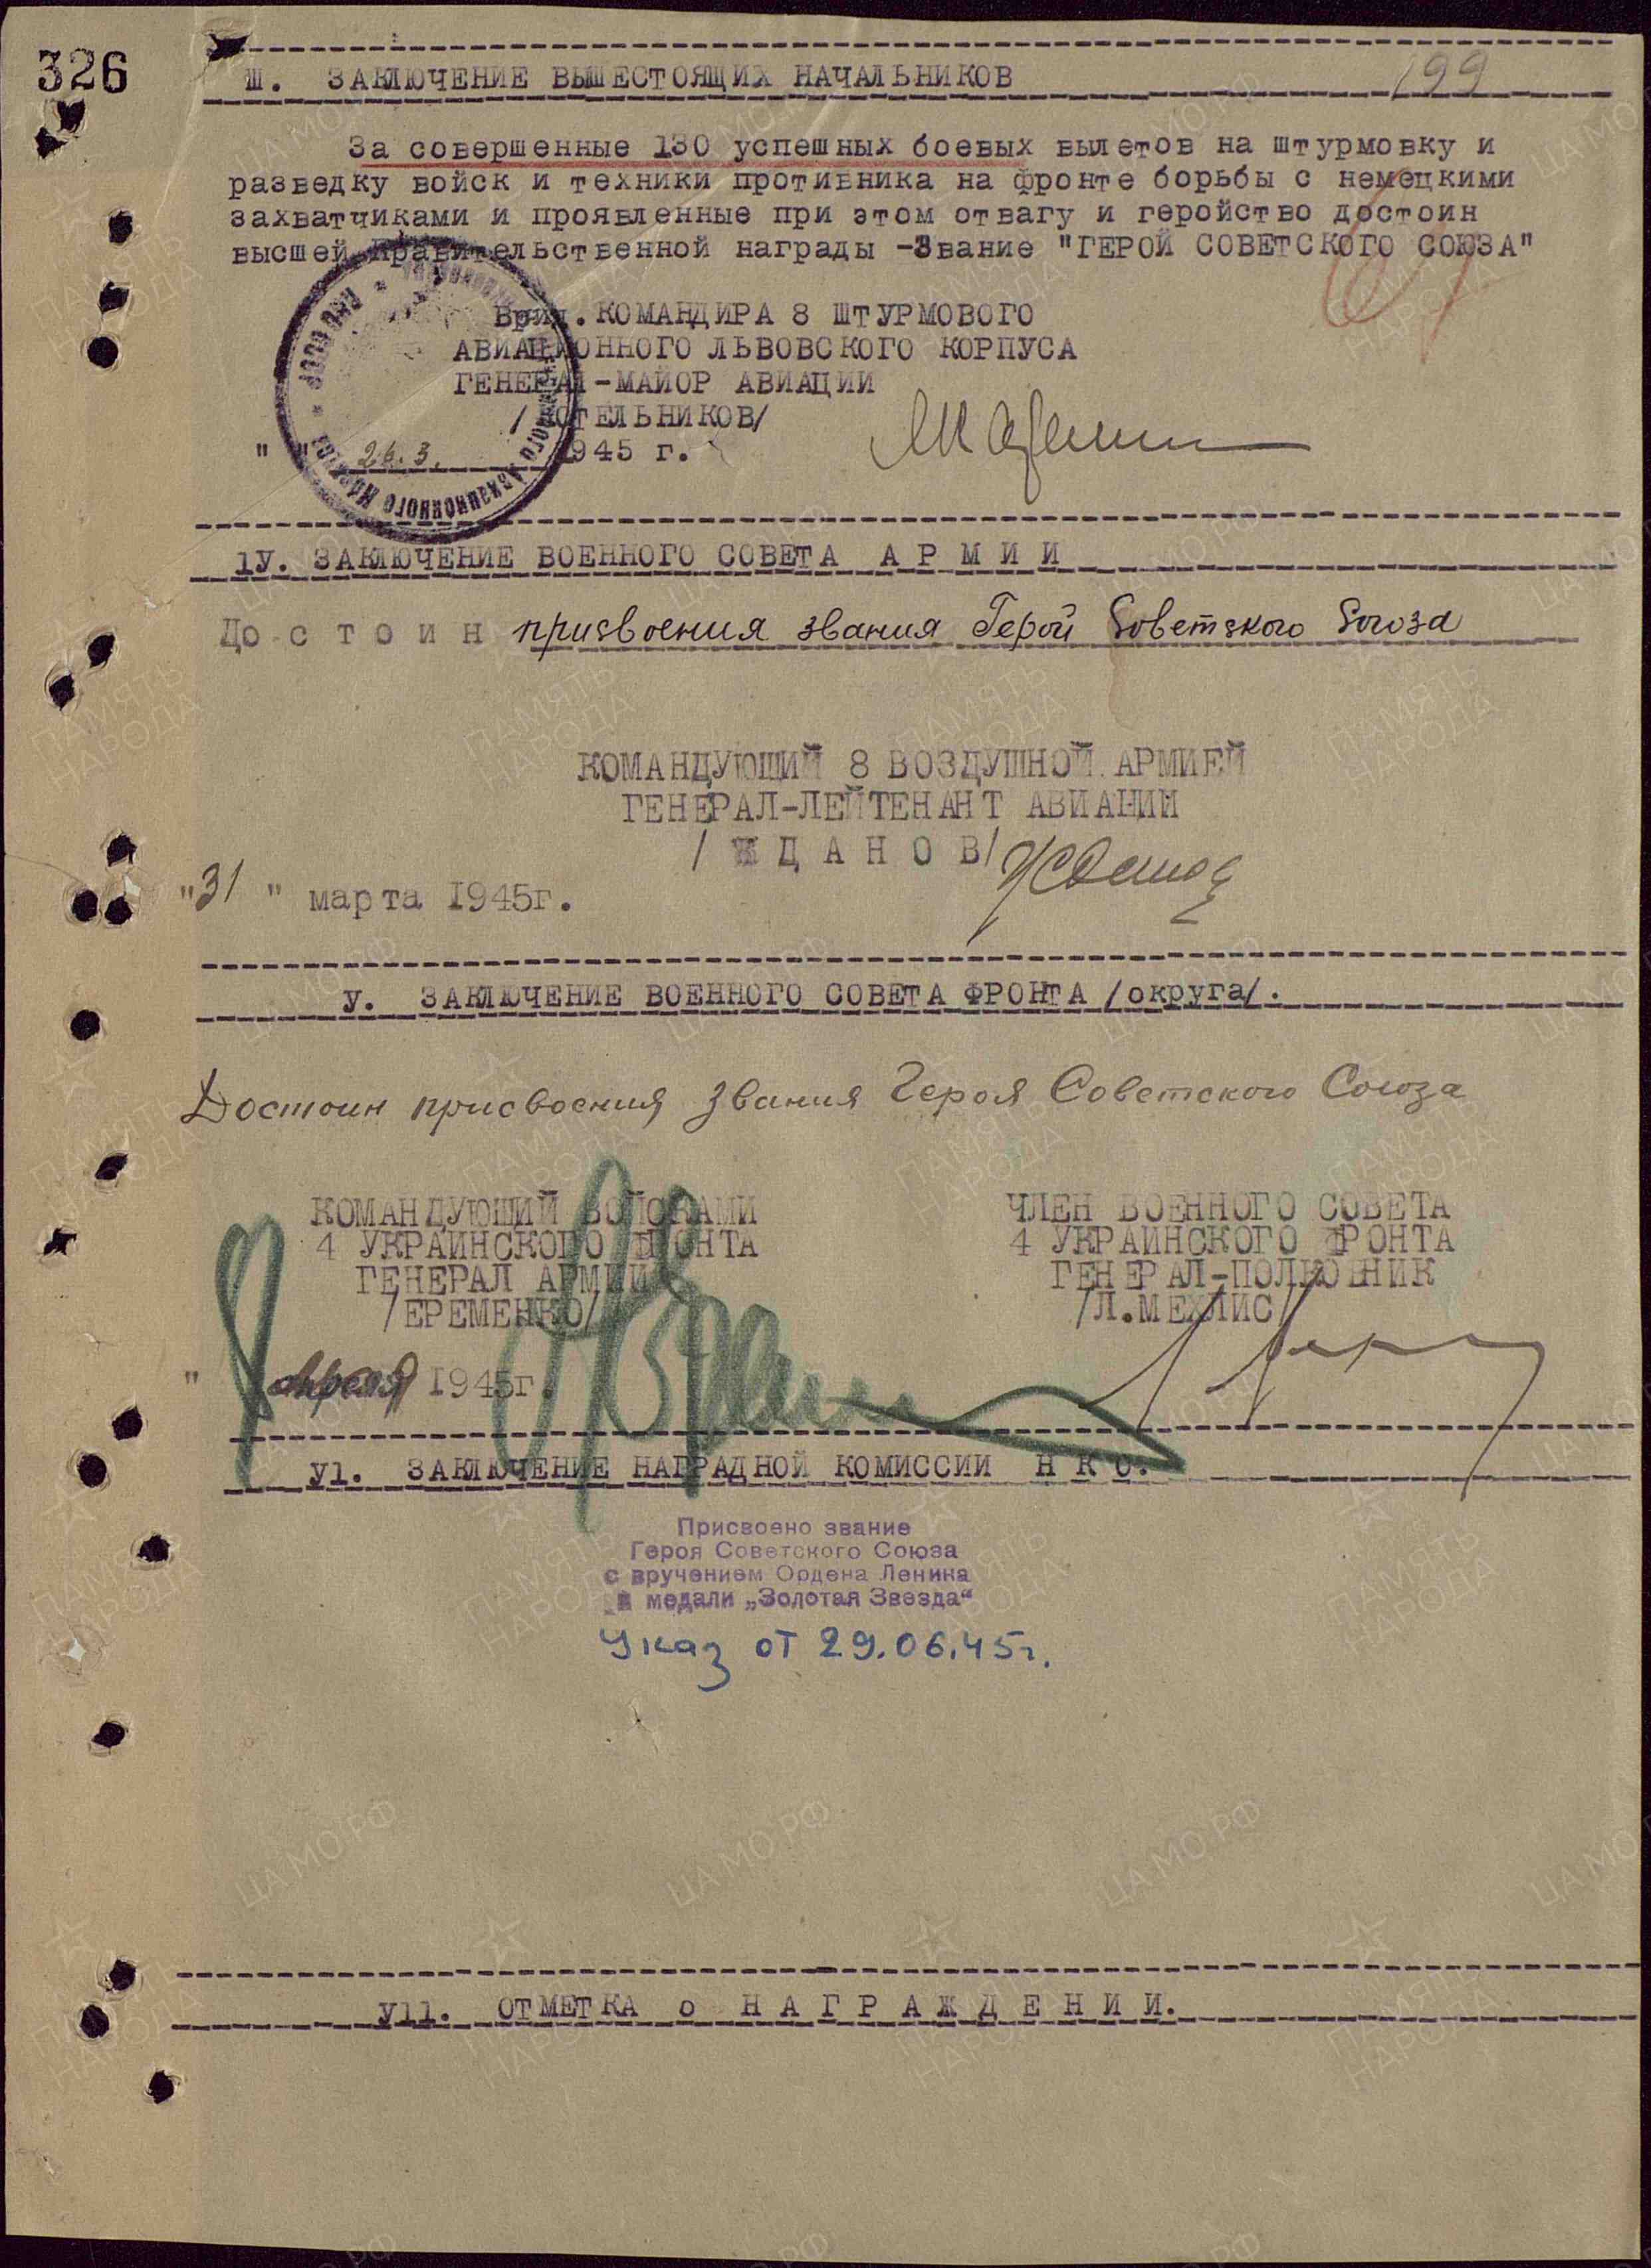 326
199
Ш. ЗАКЛЮЧЕНИЕ ВЫШЕСТОЯЩИХ НАЧАЛЬНИКОВ
За совершенные 130 успешных боевых вылетов на штурмовку и
разведку войск и техники противника на фронте борьбы с немецкими
захватчиками и проявленные при этом отвагу и геройство достоин
высшей правительственной награды -Звание "ГЕРОЙ СОВЕТСКОГО СОЮЗА"
Врид. КОМАНДИРА 8 ШТУРМОВОГО
АВИАЦИОННОГО ЛЬВОВСКОГО КОРПУСА
ГЕНЕРАЛ-МАЙОР АВИАЦИИ
/КОТЕЛЬНИКОВ/
" " 26.3. 1945 г.
1У. ЗАКЛЮЧЕНИЕ ВОЕННОГО СОВЕТА А Р М И И
До с т о и н присвоения звания Герой Советского Союза
КОМАНДУЮЩИЙ 8 ВОЗДУШНОЙ АРМИЕЙ
ГЕНЕРАЛ-ЛЕЙТЕНАНТ АВИАЦИИ
/ Ж Д А Н О В/
"31 " марта 1945г.
У. ЗАКЛЮЧЕНИЕ ВОЕННОГО СОВЕТА ФРОНТА /округа/.
Достоин присвоения звания Героя Советского Союза
КОМАНДУЮЩИЙ ВОЙСКАМИ
4 УКРАИНСКОГО ФРОНТА
ГЕНЕРАЛ АРМИИ
/ЕРЕМЕНКО/
ЧЛЕН ВОЕННОГО СОВЕТА
4 УКРАИНСКОГО ФРОНТА
ГЕНЕРАЛ-ПОЛКОВНИК
/Л.МЕХЛИС/
" апреля 1945г.
У1. ЗАКЛЮЧЕНИЕ НАГРАДНОЙ КОМИССИИ Н К О.
Присвоено звание
Героя Советского Союза
с вручением Ордена Ленина
и медали „Золотая Звезда“
Указ от 29.06.45г.
У11. ОТМЕТКА о Н А Г Р А Ж Д Е Н И И.